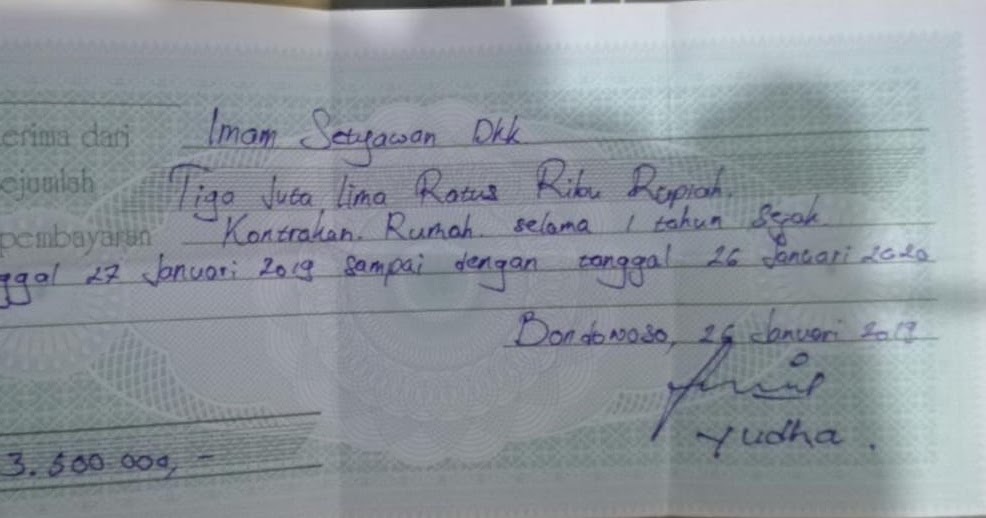 erima dari Imam Setyawan Dkk
ejumlah Tiga Juta lima Ratus Ribu Rupiah.
pembayaran Kontrakan. Rumah. selama 1 tahun Sejak
ggal 27 Januari 2019 sampai dengan tanggal 26 Januari 2020
Bondowoso, 26 Januari 2019
Yudha.
3.500 000, -